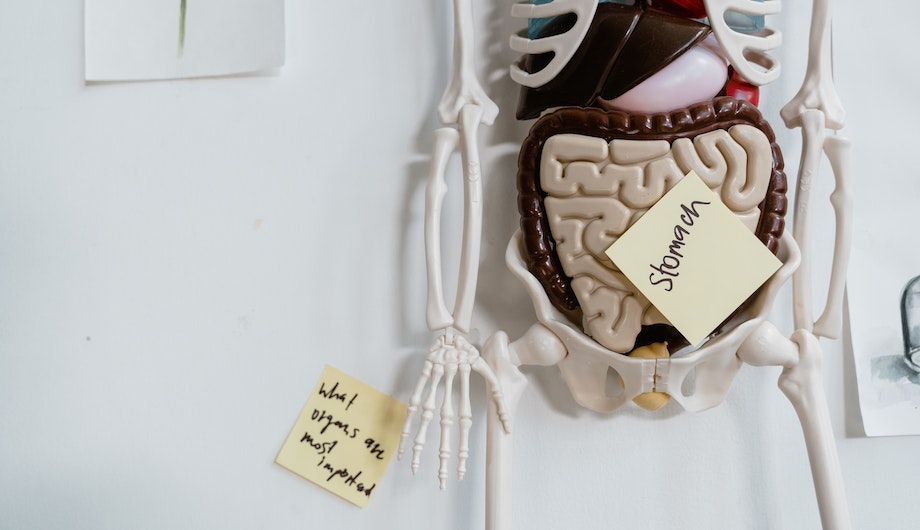 Stomach
What
organs are
most
important